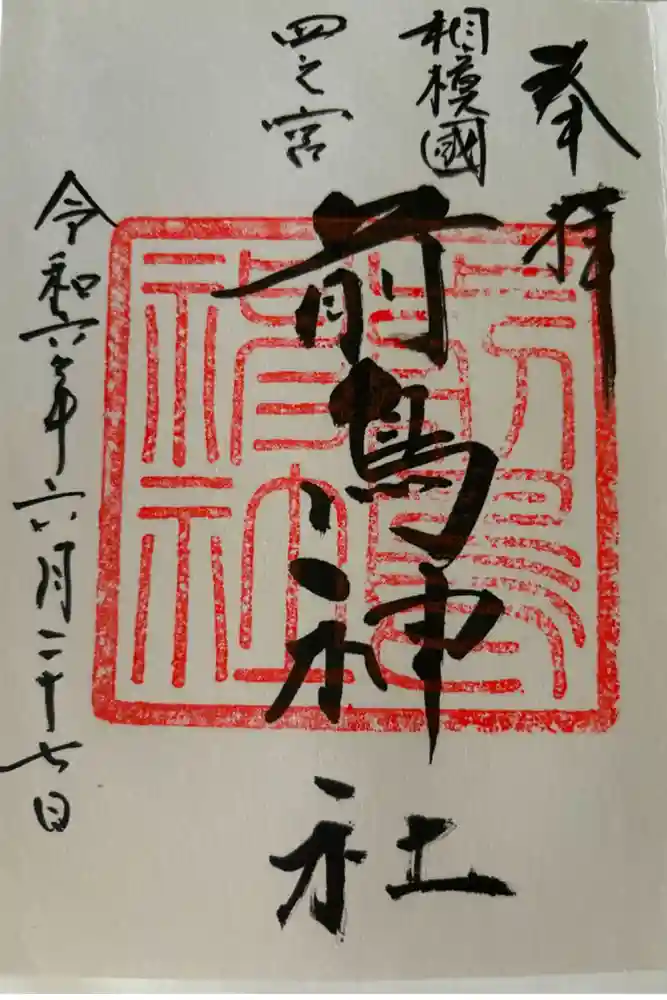 奉拝
相模國
四之宮
前鳥神社
令和六年六月二十七日
前鳥
神社